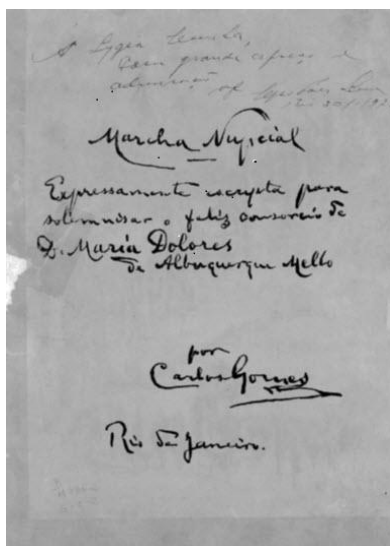 A Lygia
com grande
admiração of
Marcha Nupcial
Expressamente escripta para
solemnisar o feliz consorcio de
D. Maria Dolores
de Albuquerque Mello
por
Carlos Gomes
Rio de Janeiro.